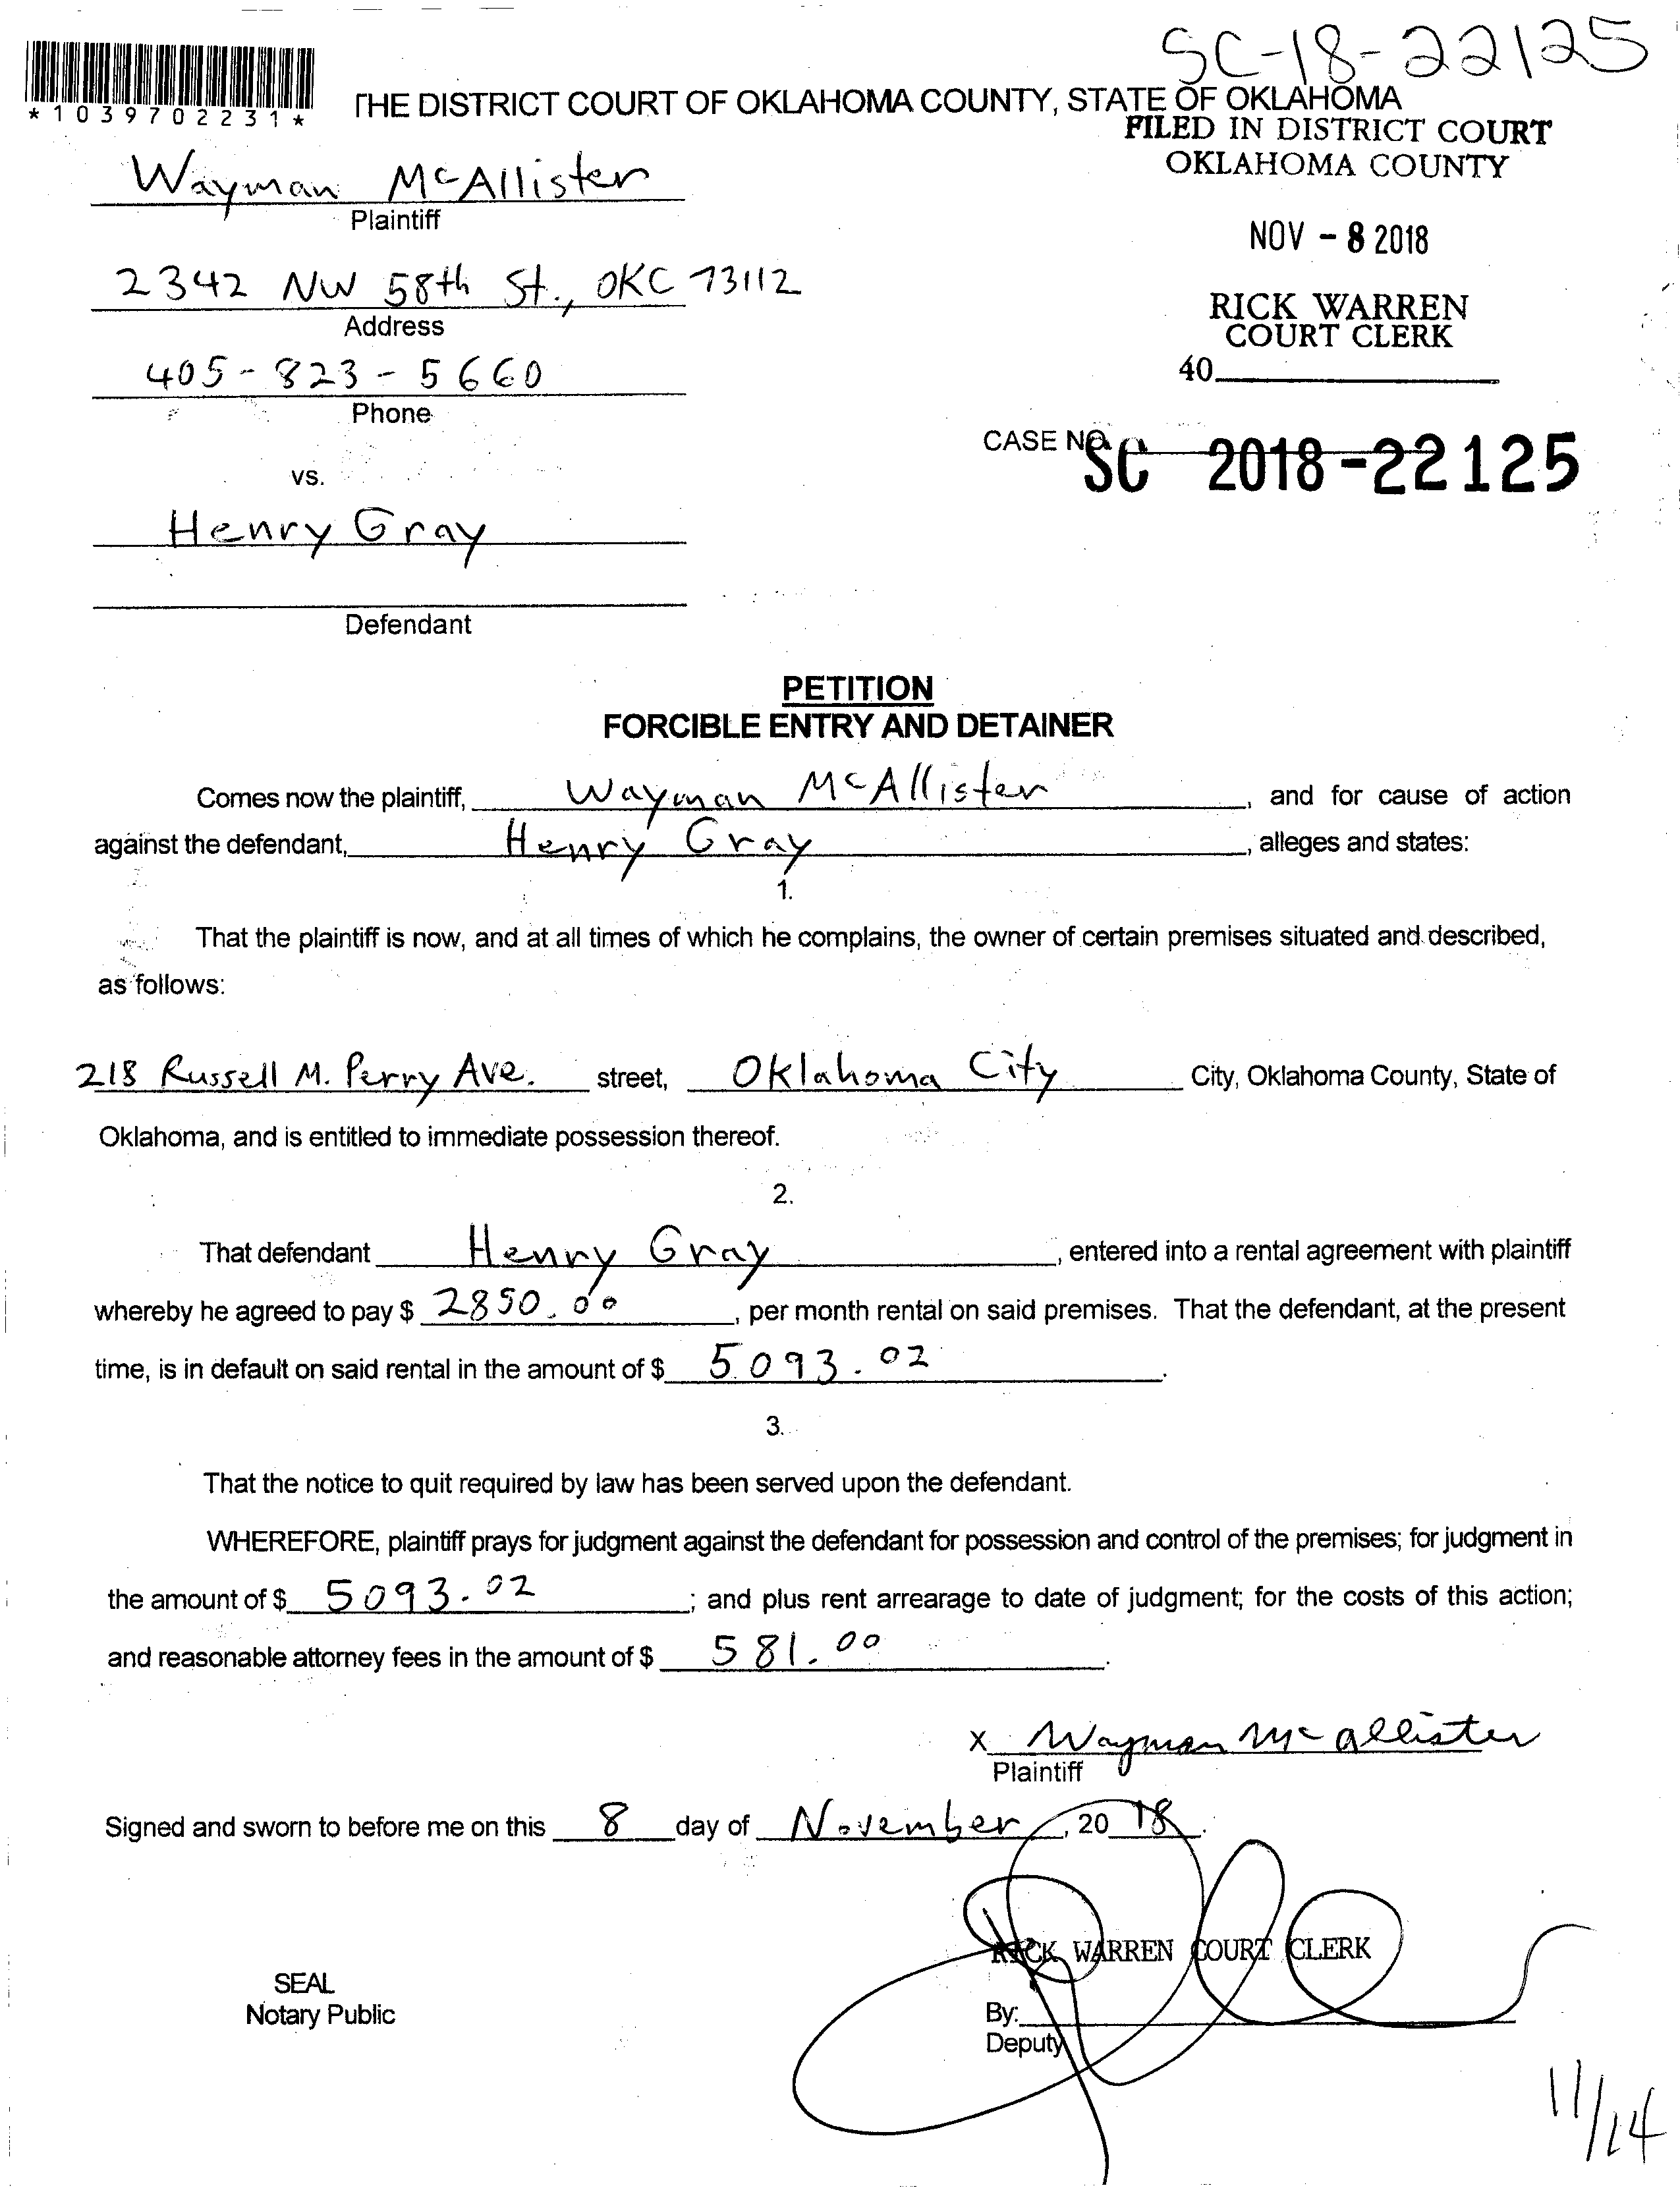 SC-18-22125
*1039702231*
THE DISTRICT COURT OF OKLAHOMA COUNTY, STATE OF OKLAHOMA
FILED IN DISTRICT COURT
OKLAHOMA COUNTY
Wayman McAllister
Plaintiff
NOV - 8 2018
2342 NW 58th St., OKC 73112
Address
RICK WARREN
COURT CLERK
405-823-5660
40
Phone
CASE NO. SC 2018-22125
vs.
Henry Gray
Defendant
PETITION
FORCIBLE ENTRY AND DETAINER
Comes now the plaintiff, Wayman McAllister, and for cause of action
against the defendant, Henry Gray, alleges and states:
1.
That the plaintiff is now, and at all times of which he complains, the owner of certain premises situated and described,
as follows:
218 Russell M. Perry Ave. street, Oklahoma City City, Oklahoma County, State of
Oklahoma, and is entitled to immediate possession thereof.
2.
That defendant Henry Gray, entered into a rental agreement with plaintiff
whereby he agreed to pay $ 2850.00, per month rental on said premises. That the defendant, at the present
time, is in default on said rental in the amount of $ 5093.02.
3.
That the notice to quit required by law has been served upon the defendant.
WHEREFORE, plaintiff prays for judgment against the defendant for possession and control of the premises; for judgment in
the amount of $ 5093.02; and plus rent arrearage to date of judgment; for the costs of this action;
and reasonable attorney fees in the amount of $ 581.00.
X Wayman McAllister
Plaintiff
Signed and sworn to before me on this 8 day of November, 2018.
RICK WARREN COURT CLERK
SEAL
Notary Public
By:
Deputy
11/14